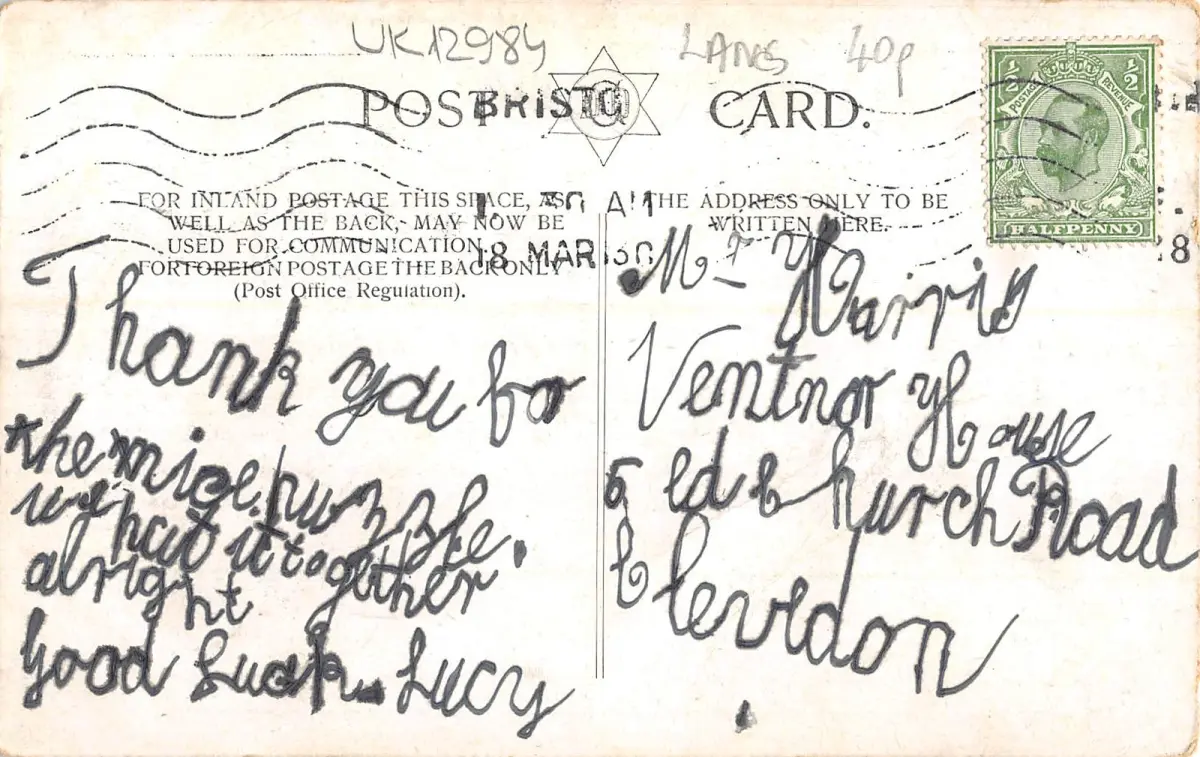 UK12984 LANCS 40p
POST CARD.
BRISTO
½ POSTAGE REVENUE ½
HALFPENNY
FOR INLAND POSTAGE THIS SPACE, AS
WELL AS THE BACK, MAY NOW BE
USED FOR COMMUNICATION
FOR FOREIGN POSTAGE THE BACK ONLY
(Post Office Regulation).
THE ADDRESS ONLY TO BE
WRITTEN HERE.
30 AM
18 MAR
8
Thank you for
the nice puzzle.
we put it together
alright
Good Luck. Lucy
Mr Harris
Ventnor House
5 Old Church Road
Clevedon